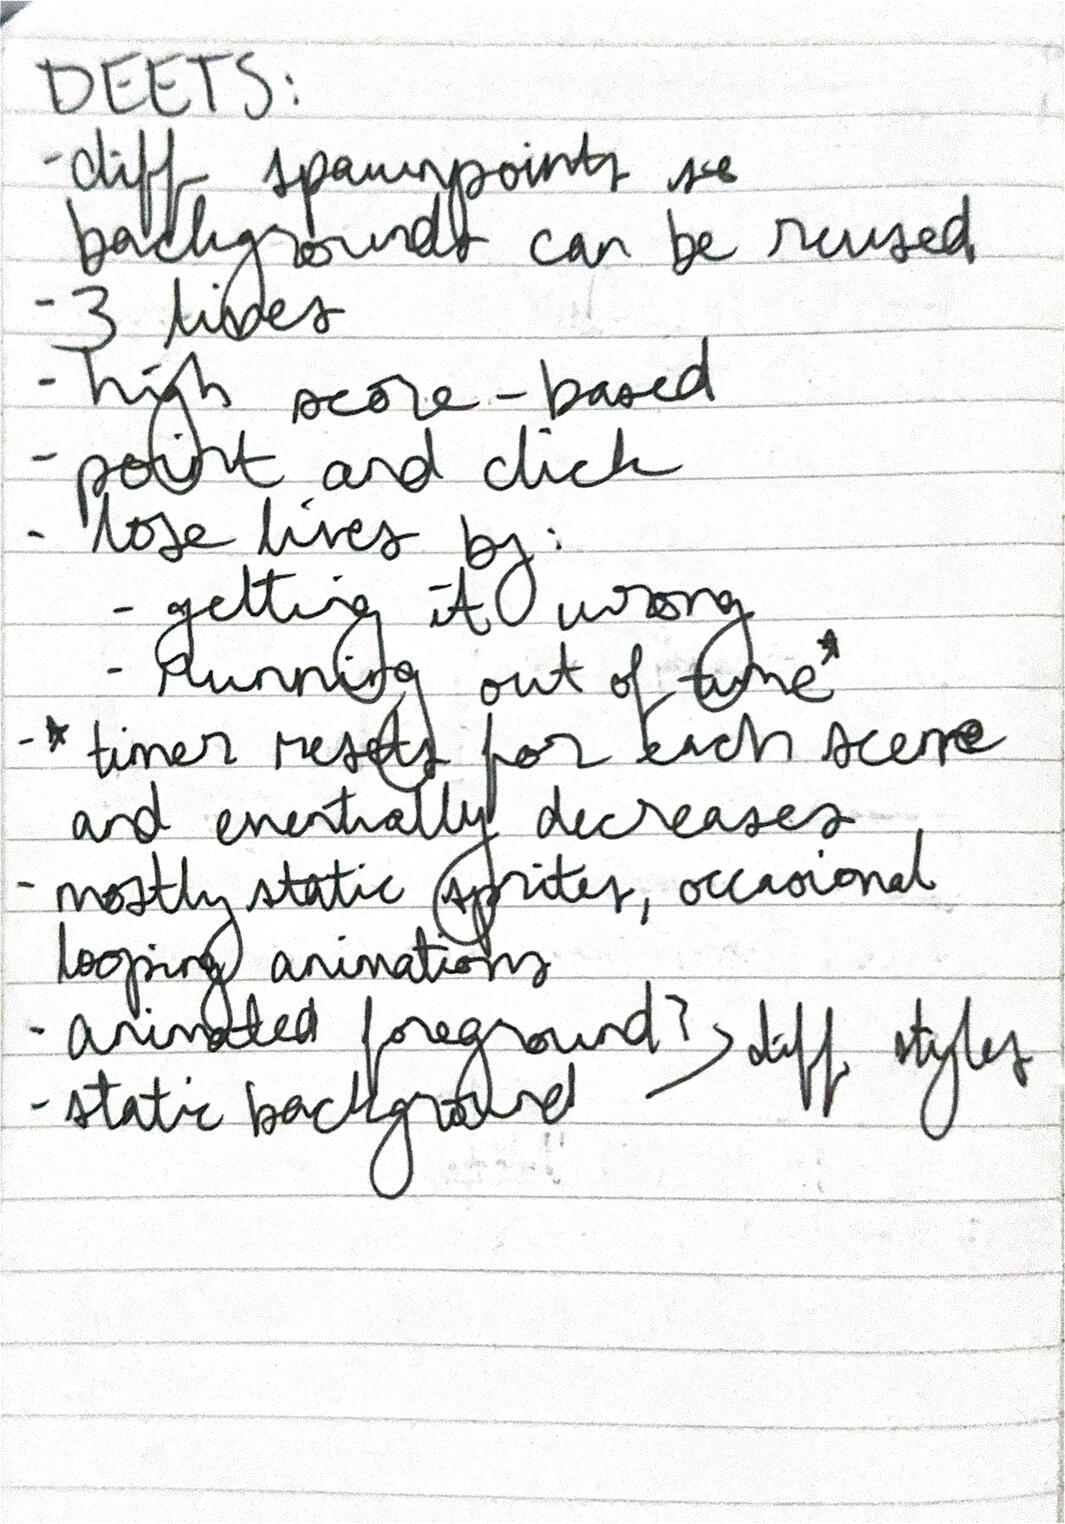 DEETS:
-diff spawnpoints so
backgrounds can be reused
-3 lives
- high score-based
- point and click
- lose lives by:
- getting it wrong
- running out of time*
-* timer resets for each scene
and eventually decreases
- mostly static sprites, occasional
looping animations
- animated foreground? > diff styles
- static background